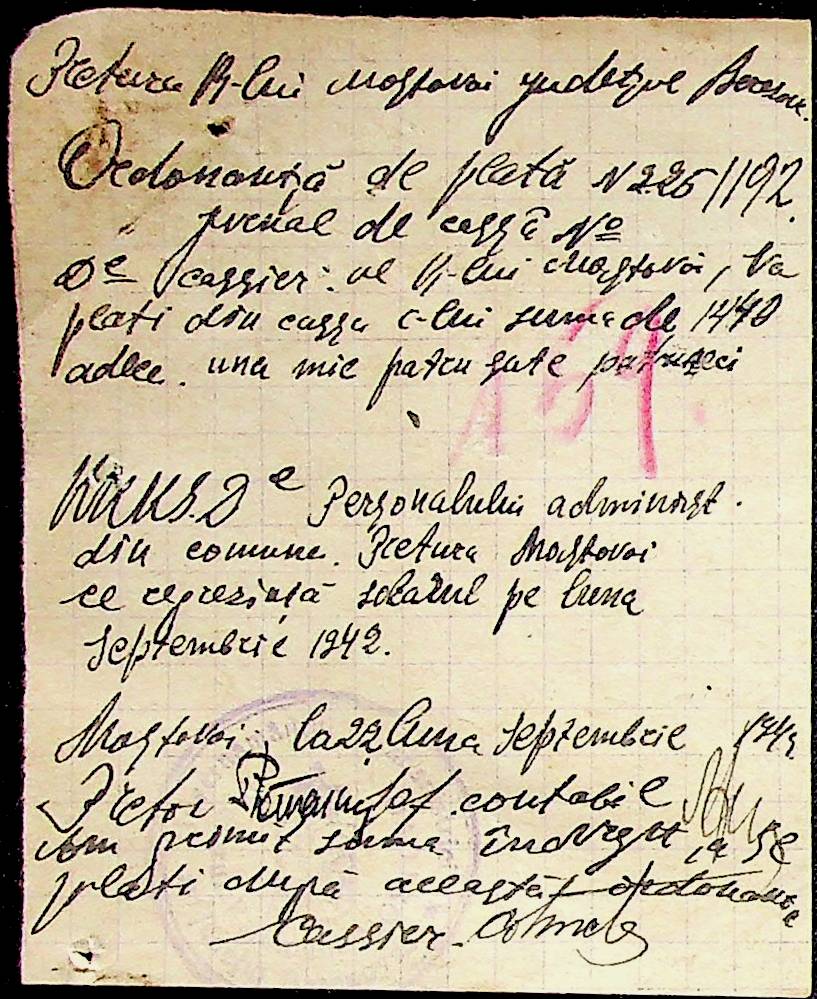 Pretura R-lui Mostovoi județul Berezov.
Ordonanță de plată N 225/1192.
jurnal de cassă Nº
De cassier al R-lui Mostovoi, va
plati din cassa c-lui suma de 1440
adece una mie patru sute patruzeci
159.
De Personalului administ.
din comuna. Pretura Mostovoi
ce reprezintă salarul pe luna
Septembrie 1942.
Mostovoi, la 22 luna Septembrie 194
Pretor șef contabil
Am primit suma
plati după această ordonanța
Cassier